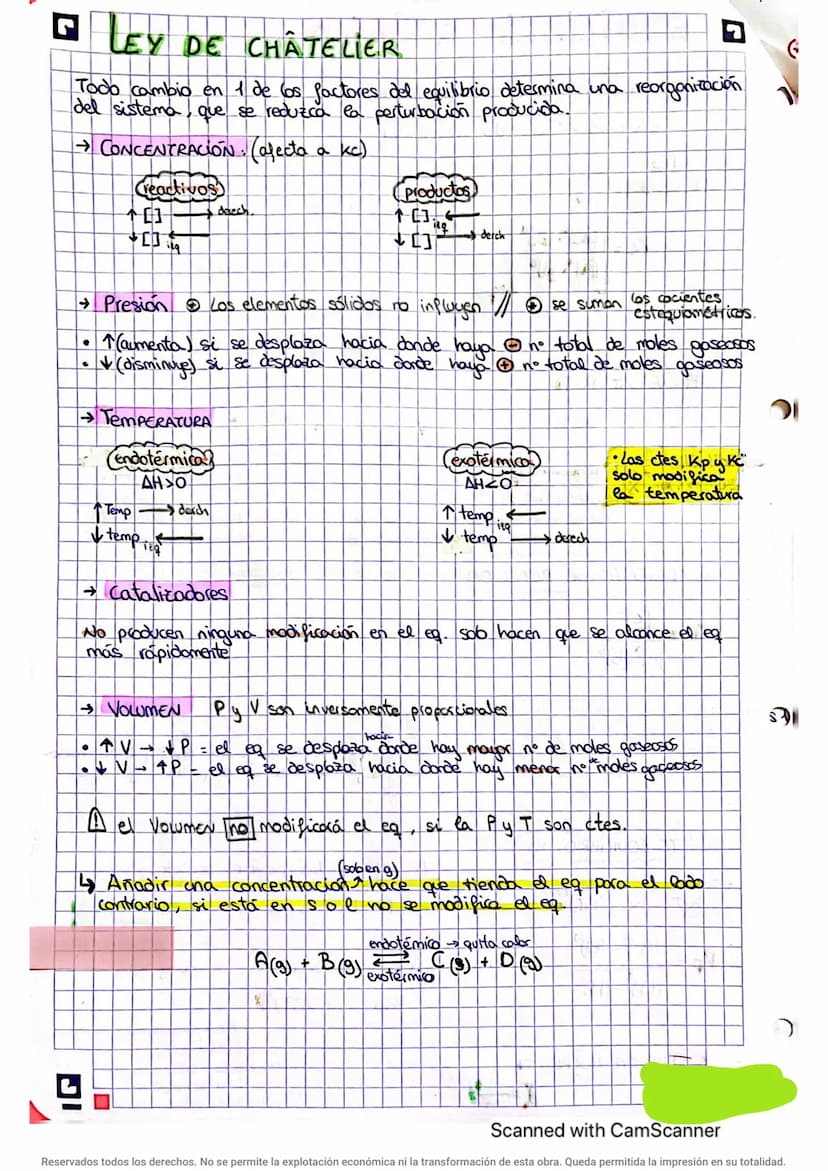 LEY DE CHÂTELIER
Todo cambio en 1 de los factores del equilibrio determina una reorganización
del sistema, que se reduzca la perturbación producida.
→ CONCENTRACIÓN: (afecta a Kc)
reactivos productos
↑ [ ] → derech. ↑ [ ] izq ←
↓ [ ] izq ← ↓ [ ] → derch
→ Presión ⊕ Los elementos sólidos no influyen // ⊕ se suman los cocientes
estequiométricos.
• ↑(aumenta) si se desplaza hacia donde haya ⊖ nº total de moles gaseosos
• ↓(disminuye) si se desplaza hacia donde haya ⊕ nº total de moles gaseosos
→ TEMPERATURA
endotérmica exotérmica • Las ctes Kp y Kc
ΔH>0 ΔH<0 solo modifica
la temperatura
↑ Temp → derch ↑ temp izq ←
↓ temp izq ← ↓ temp → derech
→ Catalizadores
No producen ninguna modificación en el eq. solo hacen que se alcance el eq
más rápidamente
→ VOLUMEN P y V son inversamente proporcionales
• ↑ V → ↓ P = el eq se desplaza hacia donde hay mayor nº de moles gaseosos
• ↓ V → ↑ P = el eq se desplaza hacia donde hay menor nº moles gaseosos
⚠ el Volumen no modificará el eq, si la P y T son ctes.
(solo en g)
↳ Añadir una concentración ↗ hace que tienda el eq para el lado
contrario, si está en s o l no se modifica el eq.
endotémico → quita calor
A(g) + B(g) ⇄ C(g) + D(g)
exotérmico
Scanned with CamScanner
Reservados todos los derechos. No se permite la explotación económica ni la transformación de esta obra. Queda permitida la impresión en su totalidad.